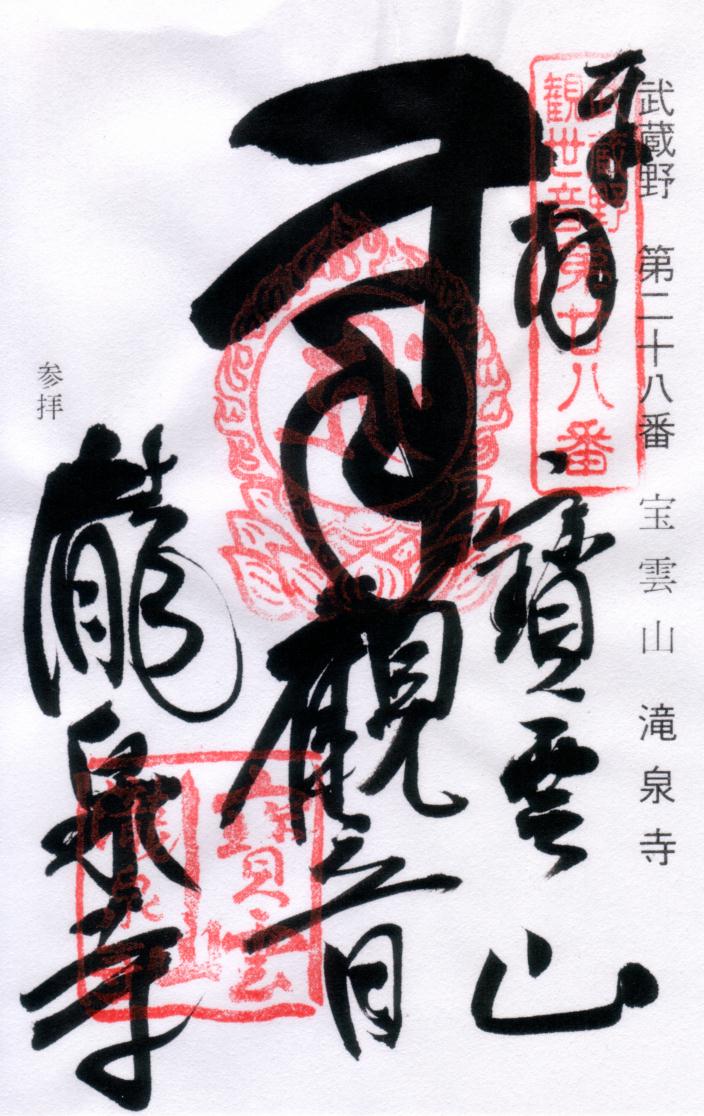 武蔵野 第二十八番 宝雲山 滝泉寺
武蔵野
観世音第廿八番
奉拝
寶雲山
觀音
寶雲
山
瀧泉
瀧泉寺
参拝